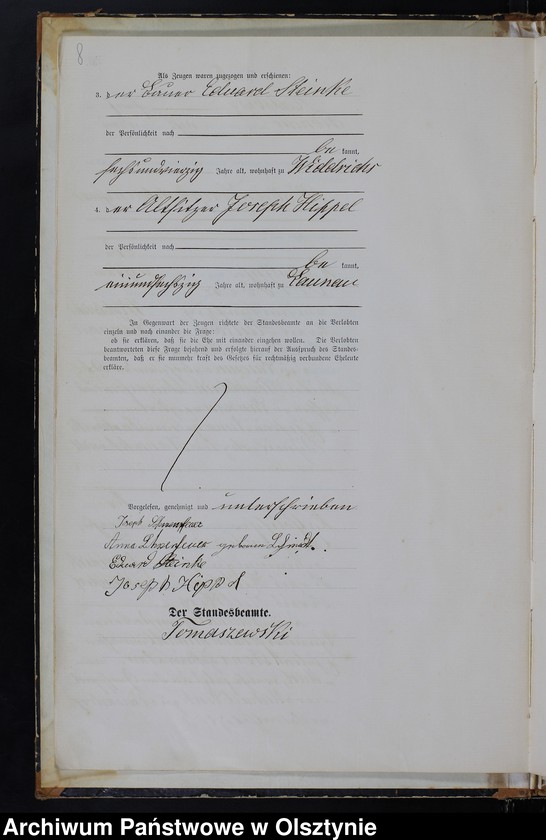 8
Als Zeugen waren zugezogen und erschienen:
3. der Bauer Eduard Steinke
der Persönlichkeit nach
be kannt,
sechsundvierzig Jahre alt, wohnhaft zu Widdrichs
4. der Altsitzer Joseph Hippel
der Persönlichkeit nach
be kannt,
einundsechszig Jahre alt, wohnhaft zu Launau
In Gegenwart der Zeugen richtete der Standesbeamte an die Verlobten
einzeln und nach einander die Frage:
ob sie erklären, daß sie die Ehe mit einander eingehen wollen. Die Verlobten
beantworteten diese Frage bejahend und erfolgte hierauf der Ausspruch des Standes-
beamten, daß er sie nunmehr kraft des Gesetzes für rechtmäßig verbundene Eheleute
erkläre.
Vorgelesen, genehmigt und unterschrieben
Joseph
Anna geborene
Eduard Steinke
Joseph Hippel
Der Standesbeamte.
Tomaszewski
Archiwum Państwowe w Olsztynie